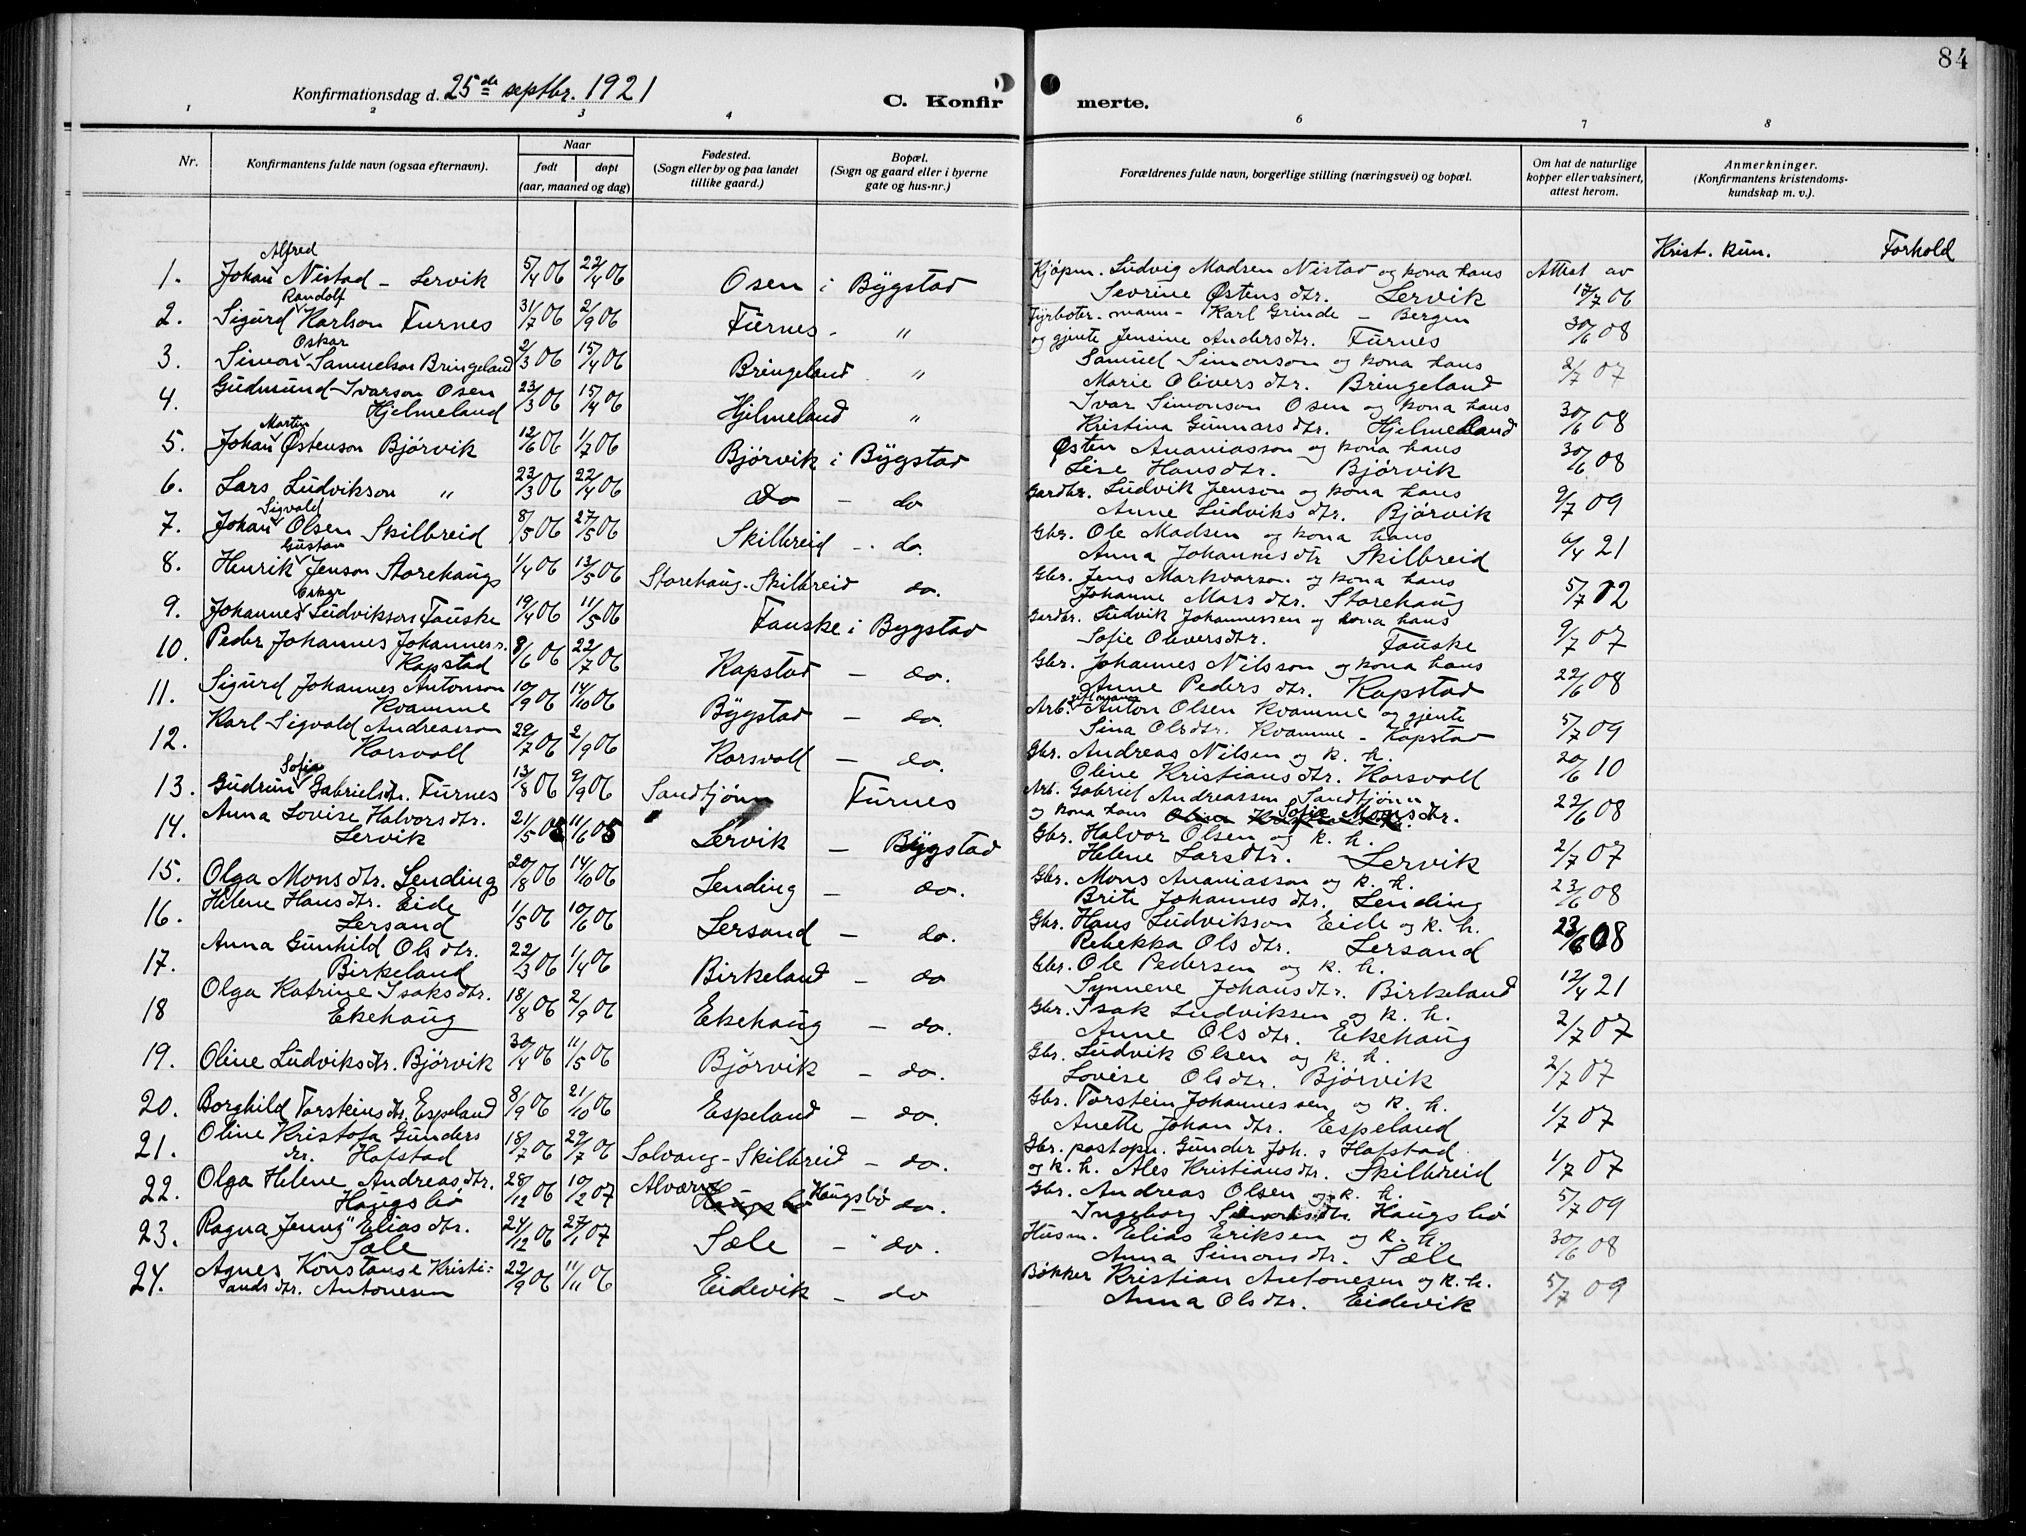 84
Konfirmationsdag d. 25de septbr. 1921
C. Konfirmerte.
1 2 3 4 6 7 8
Nr. Konfirmantens fulde navn (ogsaa efternavn). Naar født døpt (aar, maaned og dag) Fødested. (Sogn eller by og paa landet tillike gaard.) Bopæl. (Sogn og gaard eller i byerne gate og hus-nr.) Forældrenes fulde navn, borgerlige stilling (næringsvei) og bopæl. Om hat de naturlige kopper eller vaksinert, attest herom. Anmerkninger. (Konfirmantens kristendoms-kundskap m. v.).
Krist. kun. Forhold
Alfred
1. Johan Nistad - Lervik 5/4 06 22/4 06 Osen i Bygstad Kjøpm. Ludvig Madsen Nistad og kona hans Attest av
Sevrine Østensdtr. Lervik 17/7 06
Randolf
2. Sigurd Karlson Furnes 31/7 06 2/9 06 Furnes - " Fyrbøter-mann - Karl Grinde - Bergen
og gjente Jensine Andersdtr. Furnes 30/6 08
Oskar
3. Simon Samuelson Bringeland 2/3 06 15/4 06 Bringeland " Samuel Simonson og kona hans
Marie Olivers dtr. Bringeland 2/7 07
4. Gudmund Ivarson Osen 23/3 06 15/4 06 Hjelmeland " Ivar Simonson Osen og kona hans
Hjelmeland Kristina Gunnars dtr. Hjelmeland 30/6 08
Martin
5. Johan Østenson Bjørvik 12/6 06 1/7 06 Bjørvik i Bygstad Østen Ananiasson og kona hans
Lise Hans dtr. Bjørvik 30/6 08
6. Lars Ludvikson " 23/3 06 22/4 06 do - do Gardbr. Ludvik Jenson og kona hans
Anne Ludviks dtr. Bjørvik 9/7 09
Sigvald
7. Johan Olsen Skilbreid 8/5 06 27/5 06 Skilbreid - do. Gbr. Ole Madsen og kona hans
Anna Johannesdtr Skilbreid 6/4 21
Gustav
8. Henrik Jenson Storehaug 1/4 06 13/5 06 Storehaug - Skilbreid do. Gbr. Jens Markvorson og kona hans
Johanne Mass dtr. Storehaug 5/7 12
Oskar
9. Johannes Ludvikson Fauske 19/4 06 11/5 06 Fauske i Bygstad Gardbr. Ludvik Johannessen og kona hans
Sofie Olivers dtr. Fauske 9/7 07
10. Peder Johannes Johannes s. 8/6 06 22/7 06 Kapstad - do. Gbr. Johannes Nilsson og kona hans
Kapstad Anne Peders dtr. Kapstad 22/6 08
11. Sigurd Johannes Antonson 10/9 06 14/10 06 Bygstad - do. Arb. gift mann Anton Olsen Kvamme og gjente
Kvamme Sina Olsdtr. Kvamme - Kapstad 5/7 09
12. Karl Sigvald Andreasson 22/7 06 2/9 06 Korsvoll - do. Gbr. Andreas Nilsen og k. h.
Korsvoll Oline Kristians dtr. Korsvoll 20/6 10
Sofia
13. Gudrun Gabrielsdtr. Furnes 13/8 06 9/9 06 Sandtjønn Furnes Arb. Gabriel Andreassen Sandtjønn
og kona hans Sofie Monsdtr. 22/6 08
14. Anna Lovise Halvorsdtr. 21/5 05 11/6 05 Lervik - Bygstad Gbr. Halvor Olsen og k. h.
Lervik Helene Larsdtr. Lervik 2/7 07
15. Olga Monsdtr. Lending 20/8 06 14/10 06 Lending - do. Gbr. Mons Ananiasson og k. h.
Brite Johannes dtr. Lending 23/6 08
16. Helene Hansdtr. Eide 1/5 06 10/6 06 Lersand - do. Gbr. Hans Ludvikson Eide og k. h.
Lersand Rebekka Ols dtr. Lersand 23/6 08
17. Anna Gunhild Olsdtr. 22/3 06 1/4 06 Birkeland - do Gbr. Ole Pedersen og k. h.
Birkeland Synneve Johansdtr. Birkeland 12/4 21
18 Olga Katrine Isaksdtr. 18/8 06 2/9 06 Ekehaug - do. Gbr. Isak Ludviksen og k. h.
Ekehaug Anne Ols dtr. Ekehaug 2/7 07
19. Oline Ludviksdtr. Bjørvik 30/4 06 11/5 06 Bjørvik - do. Gbr. Ludvik Olsen og k. h.
Lovise Olsdtr. Bjørvik 2/7 07
20. Borghild Torsteinsdtr. Espeland 8/9 06 21/10 06 Espeland - do. Gbr. Torstein Johannessen og k. h.
Anette Johan dtr. Espeland 1/7 07
21. Oline Kristofa Gunders 18/7 06 29/7 06 Solvang - Skilbreid - do. Gbr. postopn. Gunder Joh. s Hofstad
dtr. Hofstad og k. h. Ales Kristiansdtr. Skilbreid 1/7 07
22. Olga Helene Andreasdtr. 28/12 06 10/2 07 Haugsbø do. Gbr. Andreas Olsen og k. h.
Haugsbø Ingeborg Haugsbø 5/7 09
23. Ragna Jenny Elias dtr. 24/12 06 27/1 07 Sæle - do. Husm. Elias Eriksen og k. h.
Sæle Anna Simonsdtr. Sæle 30/6 08
24. Agnes Konstanse Kristi= 22/9 06 11/11 06 Eidevik - do Bøkker Kristian Antonesen og k. h.
ands dtr. Antonesen Anna Olsdtr. Eidevik 5/7 09